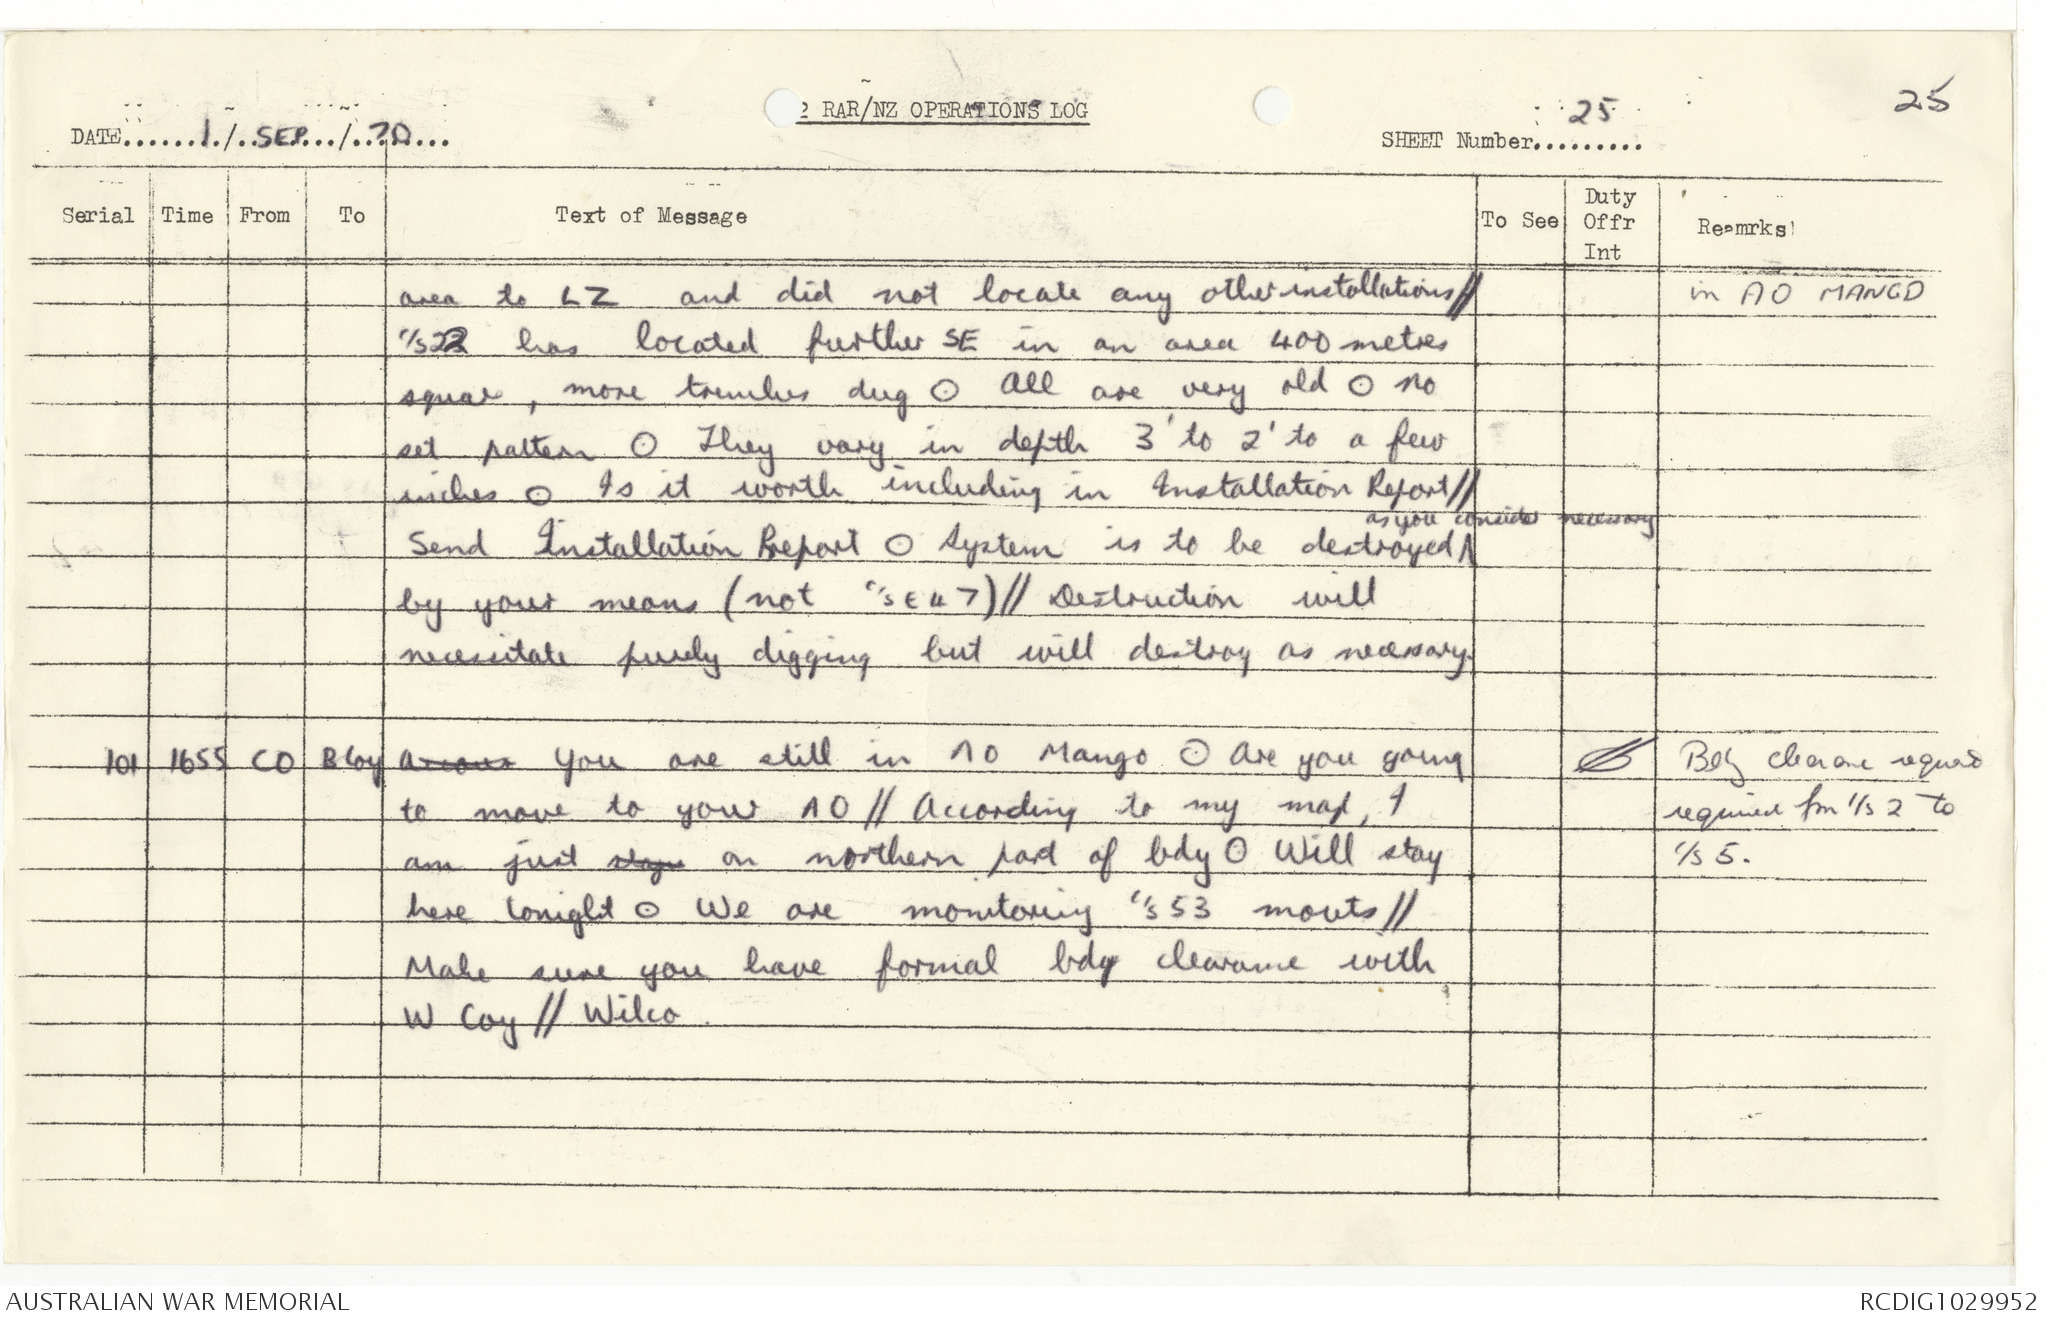 25
2 RAR/NZ OPERATIONS LOG
DATE......1./..SEP.../..70...
SHEET Number.........
25
Serial Time From To Text of Message To See Duty Offr Int Reamrks
area to LZ and did not locate any other installations// in AO MANGO
c/s 22 has located further SE in an area 400 metres
square, more trenches dug ⊙ All are very old ⊙ no
set pattern ⊙ They vary in depth 3' to 2' to a few
inches ⊙ Is it worth including in Installation Report//
as you consider necessary
Send Installation Report ⊙ System is to be destroyed ʌ
by your means (not c/s E47)// Destruction will
necessitate purely digging but will destroy as necessary.
101 1655 CO B Coy You are still in AO Mango ⊙ Are you going Bdy clearance required
to move to your AO // According to my map, I required fm c/s 2 to
am just on northern part of bdy ⊙ Will stay c/s 5.
here tonight ⊙ We are monitoring c/s 53 mouts//
Make sure you have formal bdy clearance with
W Coy // Wilco.
AUSTRALIAN WAR MEMORIAL
RCDIG1029952